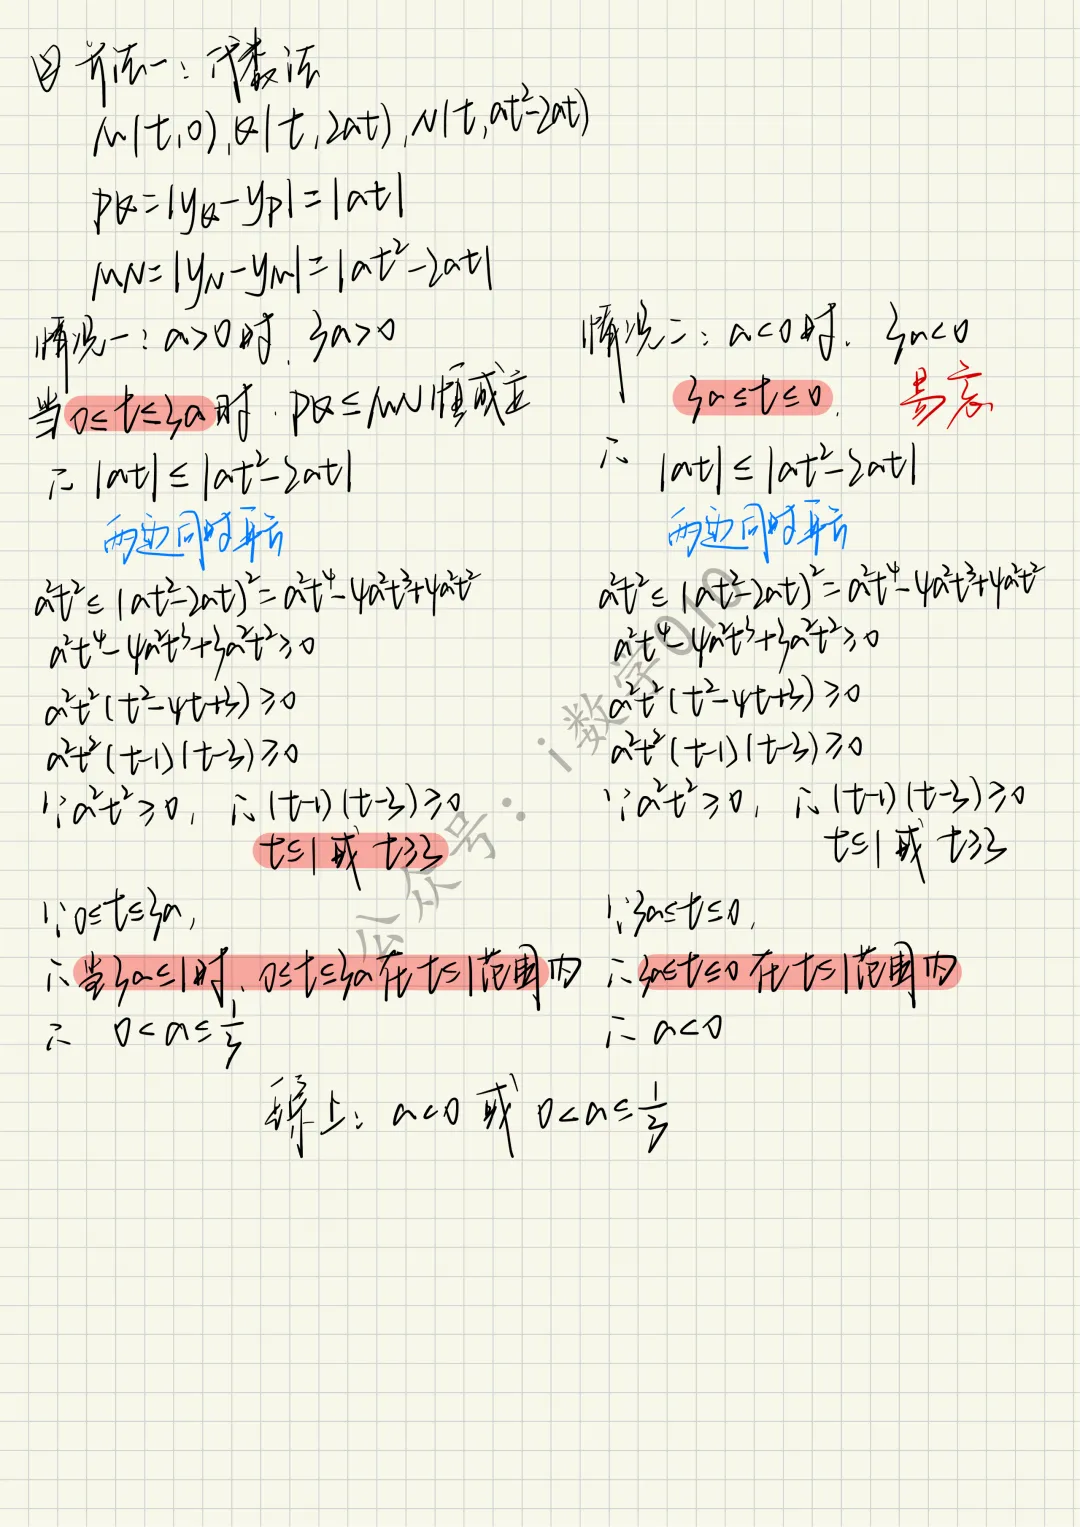 ② 方法一：代数法
M(t,0),Q(t,2at),N(t,at²-2at)
PQ=|y_Q-y_P|=|at|
MN=|y_N-y_M|=|at²-2at|
情况一：a>0时，3a>0
当0≤t≤3a时，PQ≤MN恒成立
∴|at|≤|at²-2at|
两边同时平方
a²t²≤(at²-2at)²=a²t⁴-4a²t³+4a²t²
a²t⁴-4a²t³+3a²t²≥0
a²t²(t²-4t+3)≥0
a²t²(t-1)(t-3)≥0
∵a²t²≥0，∴(t-1)(t-3)≥0
t≤1或t≥3
∵0≤t≤3a，
∴当3a≤1时，0≤t≤3a在t≤1范围内
∴0<a≤1/3
情况二：a<0时，3a<0
3a≤t≤0，易忘
∴|at|≤|at²-2at|
两边同时平方
a²t²≤(at²-2at)²=a²t⁴-4a²t³+4a²t²
a²t⁴-4a²t³+3a²t²≥0
a²t²(t²-4t+3)≥0
a²t²(t-1)(t-3)≥0
∵a²t²≥0，∴(t-1)(t-3)≥0
t≤1或t≥3
∵3a≤t≤0，
∴3a≤t≤0在t≤1范围内
∴a<0
综上：a<0或0<a≤1/3
公众号：i数学010